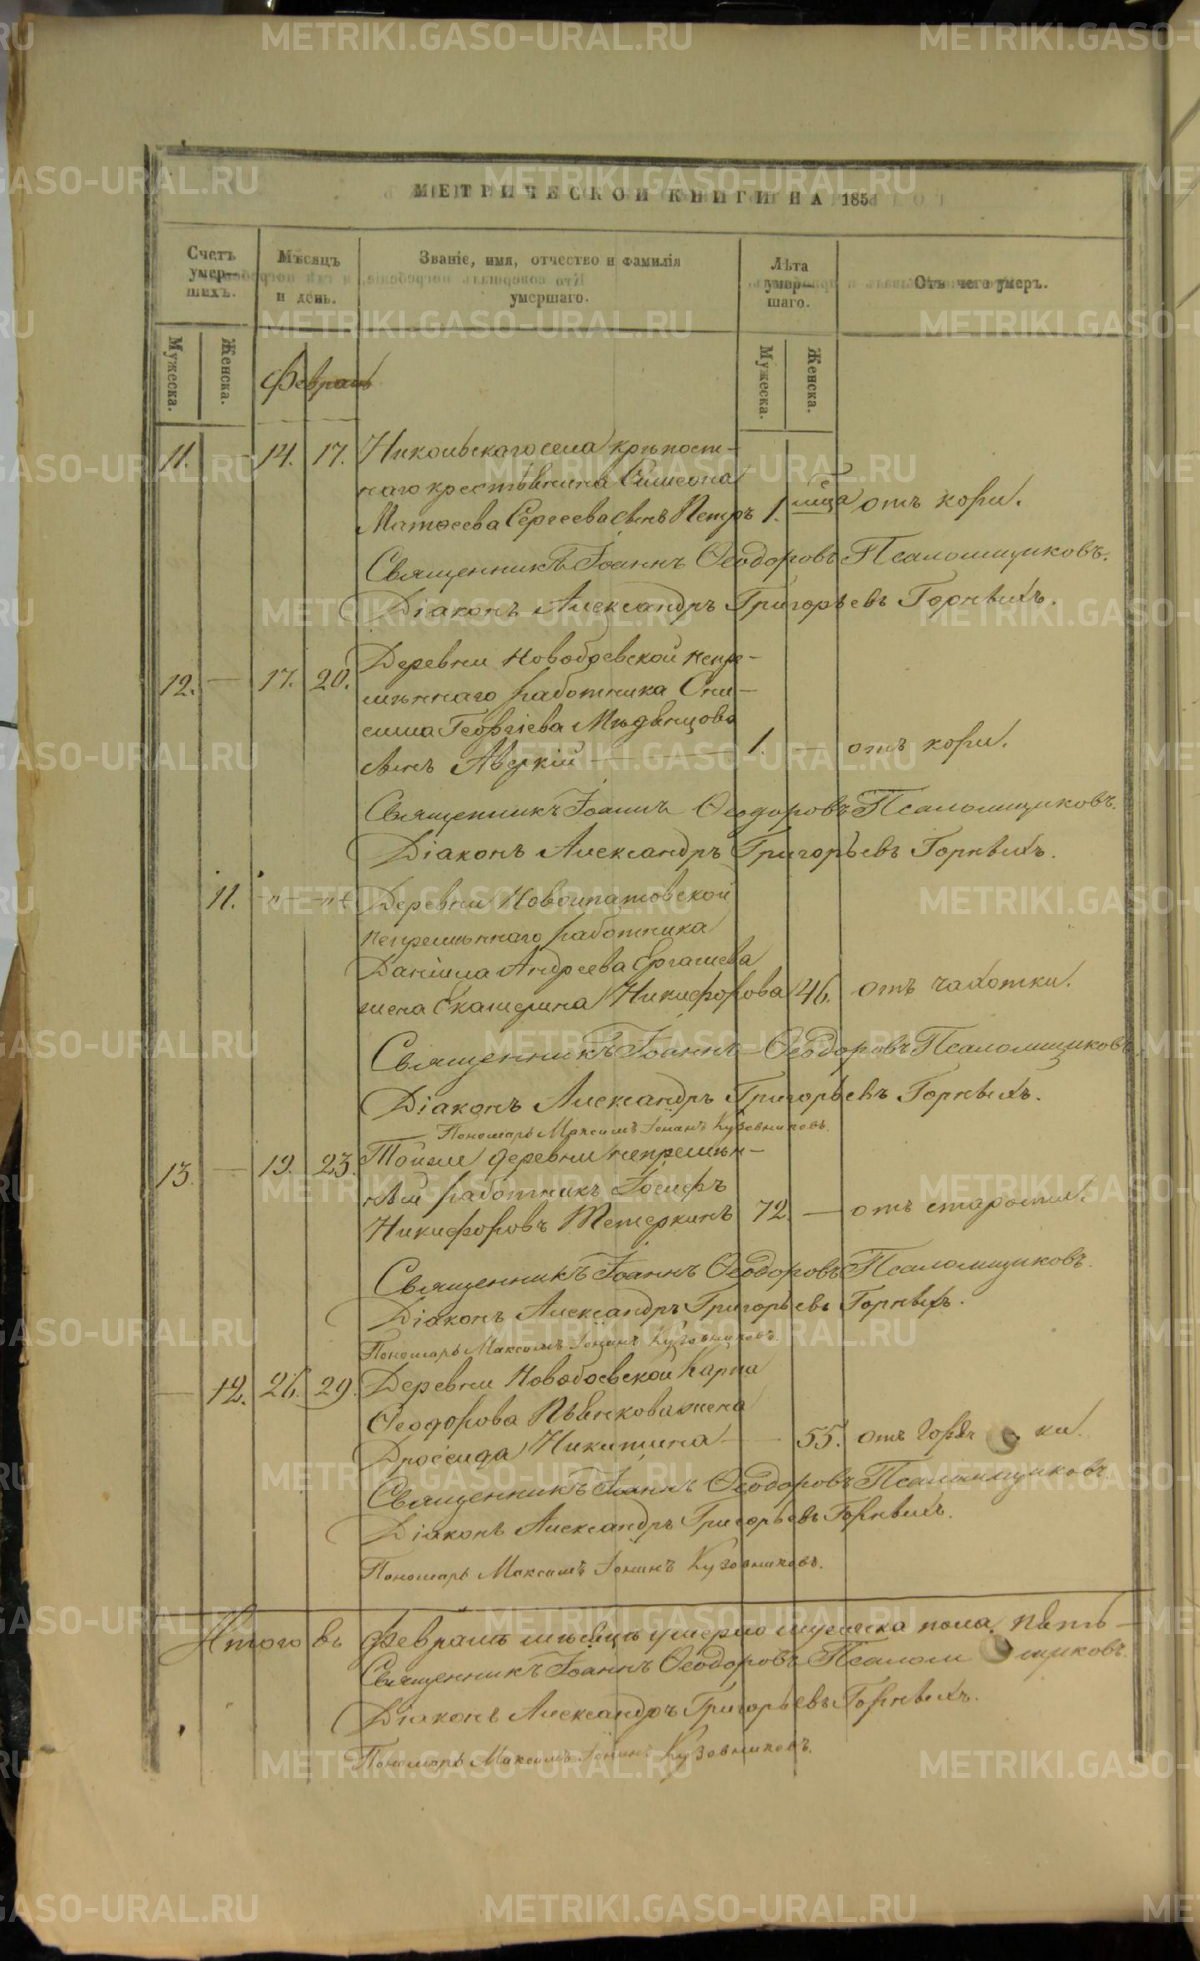 МЕТРИЧЕСКОЙ КНИГИ НА 185
Счетъ умер-шихъ.
Мѣсяцъ и день.
Званіе, имя, отчество и фамилія умершаго.
Лѣта умер-шаго.
Отъ чего умеръ.
Мужеска. Женска.
Мужеска. Женска.
Февраль
Никольскаго села крѣпост-
11. — 14. 17. наго крестьянина Симеона
Матѳеева Сергеева сынъ Петръ 1. мѣсяца отъ кори.
Священникъ Іоаннъ Ѳеодоровъ Псаломщиковъ.
Діаконъ Александръ Григорьевъ Горныхъ.
Деревни Новобоевской непре-
12. — 17. 20. мѣннаго работника Они-
сима Георгіева Мѣдянцова
сынъ Аверкій — 1. — отъ кори.
Священникъ Іоаннъ Ѳеодоровъ Псаломщиковъ.
Діаконъ Александръ Григорьевъ Горныхъ.
11. -"- -"- Деревни Новоипатовской
непремѣннаго работника
Даніила Андреева Ергашева
жена Екатерина Никифорова 46. отъ чахотки.
Священникъ Іоаннъ Ѳеодоровъ Псаломщиковъ
Діаконъ Александръ Григорьевъ Горныхъ.
Пономарь Максимъ Іонинъ Кузовниковъ.
13. — 19. 23. Тойже деревни непремѣн-
ный работникъ Іосифъ
Никифоровъ Тетеркинъ 72. — отъ старости.
Священникъ Іоаннъ Ѳеодоровъ Псаломщиковъ.
Діаконъ Александръ Григорьевъ Горныхъ.
Пономарь Максимъ Іонинъ Кузовниковъ.
— 12. 26. 29. Деревни Новобоевской Карпа
Ѳеодорова Пьянкова жена
Дросида Никитина — 55. отъ горяч ки.
Священникъ Іоаннъ Ѳеодоровъ Псаломщиковъ.
Діаконъ Александръ Григорьевъ Горныхъ.
Пономарь Максимъ Іонинъ Кузовниковъ.
Итого въ февралѣ мѣсяцѣ умерло мужеска пола пять —
Священникъ Іоаннъ Ѳеодоровъ Псаломщиковъ.
Діаконъ Александръ Григорьевъ Горныхъ.
Пономарь Максимъ Іонинъ Кузовниковъ.
METRIKI.GASO-URAL.RU